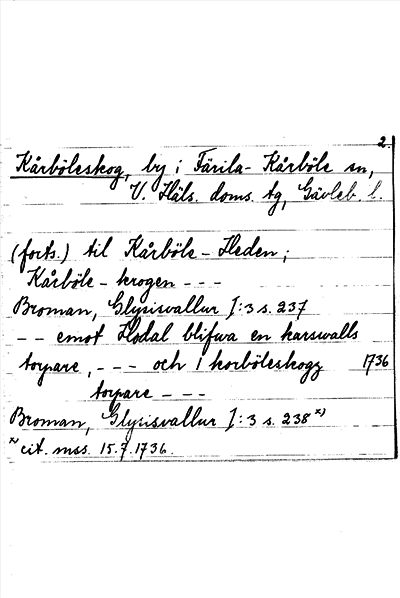 2.
Kårböleskog, by i Färila-Kårböle sn,
V. Häls. doms. tg, Gävleb. l.
(forts.) til Kårböle-Heden;
Kårböle-krogen - - -
Broman, Glysisvallur I:3 s. 237
- - emot Hodal blifwa en karswalls
torpare, - - - och 1 korböleskogz 1736
torpare - - -
Broman, Glysisvallur I:3 s. 238 x)
x) cit. mss. 15.7.1736.